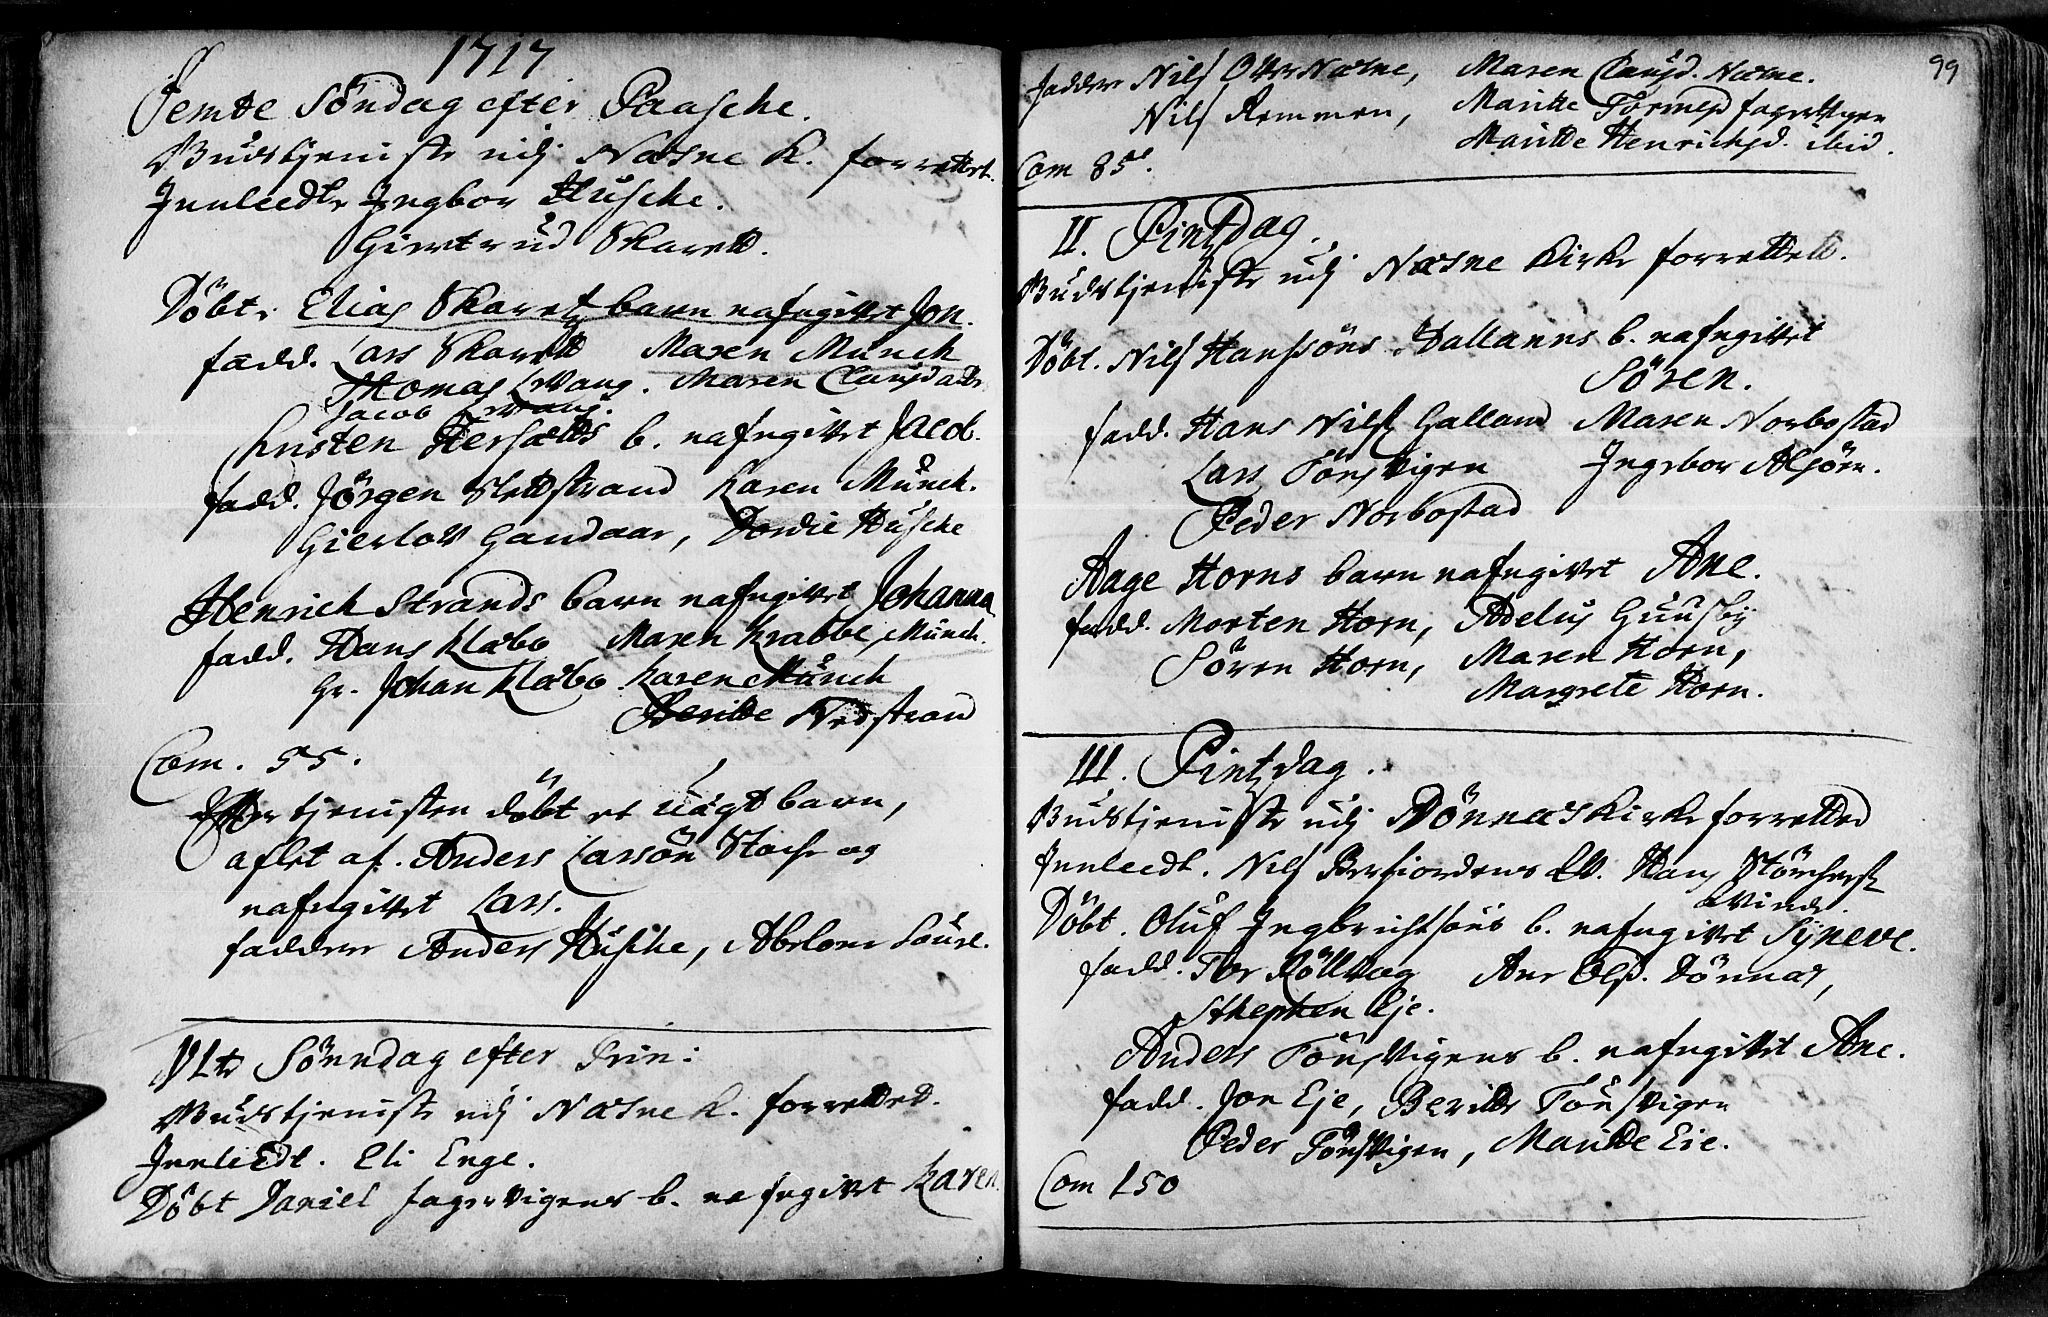 1717
Femte Söndag efter Paasche.
Gudstjeniste udj Næsne K. forrettet.
Innleedt Ingbor Husche.
Giertrud Skarett.
Döbt Elias Skaretz barn nafngivet Jon.
fadd. Lars Skarett Maren Munch
Thomas Levang. Maren Clausdatt
Jacob Levang.
Christen Hersætts b. nafngivet Jacob.
fadd. Jörgen Slettstrand Karen Munch.
Gierlov Handaar, Dordie Husche
Henrich Strands barn nafngivet Johanna
fadd. Hans Klæbo Maren Krabbe, Munch.
Hr. Johan Klæbo Karen Munch
Beritte Nedstrand
Com. 55.
Efter tjenisten döbt et uägt barn,
aflet af. Anders Larsön Stoche og
nafngivet Lars.
faddere Anders Husche, Abelone
VIte Sönndag efter Trin:
Gudstjeniste udj Næsne K. forretted.
Innleedt. Eli Enge.
Döbt Daniel Fagervigens b. nafngivet Karen.
99
faddere Nils Næsne, Maren Clausd. Næsne.
Nils Remmen, Maritte Fagervigen
Maritte Henrichsd. ibid.
Com 85.
II. Pintzdag.
Gudstjeniste udj Næsne Kirke forrettett.
Döbt. Nils Hanssöns Dallanns b. nafngivet
Sören.
fadd. Hans Nils Galland Maren Norbostad
Lars Tönsvigen Ingebor Alsöen.
Peder Norbostad
Aage Horns barn nafngivet Ane.
fadd. Morten Horn, Adelus Guusby
Sören Horn, Maren Horn,
Margrete Horn.
III. Pintzdag.
Gudstjeniste udj Dönnæs Kirke forretted
Innleedt. Nils Berfiordens Qv. Hans
Qvinde.
Döbt. Oluf Ingbrichtsöns b. nafngivet Syneve.
fadd. Tor Röllvog Ane Olsd. Dönnæs,
Stephen Eje.
Anders Tönsvigens b. nafngivet Ane.
fadd. Jon Eje, Beritte Tönsvigen
Peder Tönsvigen, Maritte Eie.
Com 150